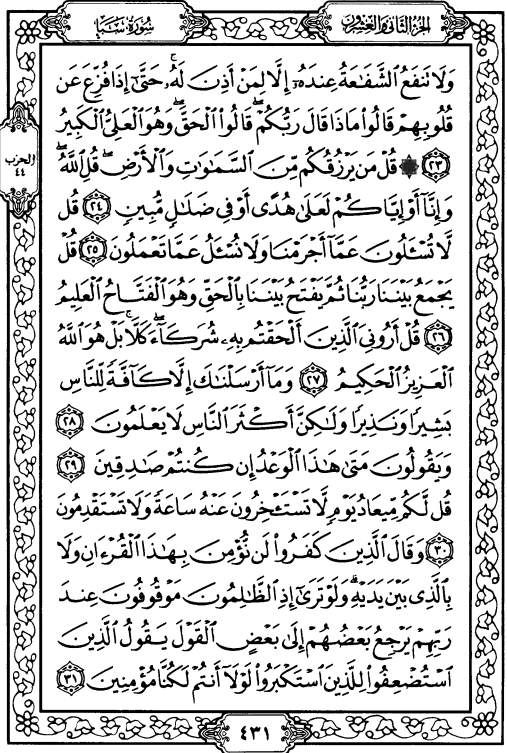 الجزء الثاني والعشرون
سورة سبإ
وَلَا تَنفَعُ الشَّفَاعَةُ عِندَهُ إِلَّا لِمَنْ أَذِنَ لَهُ حَتَّىٰ إِذَا فُزِّعَ عَن
قُلُوبِهِمْ قَالُوا مَاذَا قَالَ رَبُّكُمْ قَالُوا الْحَقَّ وَهُوَ الْعَلِيُّ الْكَبِيرُ
الحزب
٤٤
٢٣ ۞ قُلْ مَن يَرْزُقُكُم مِّنَ السَّمَاوَاتِ وَالْأَرْضِ قُلِ اللَّهُ
وَإِنَّا أَوْ إِيَّاكُمْ لَعَلَىٰ هُدًى أَوْ فِي ضَلَالٍ مُّبِينٍ ٢٤ قُل
لَّا تُسْـَٔلُونَ عَمَّا أَجْرَمْنَا وَلَا نُسْـَٔلُ عَمَّا تَعْمَلُونَ ٢٥ قُلْ
يَجْمَعُ بَيْنَنَا رَبُّنَا ثُمَّ يَفْتَحُ بَيْنَنَا بِالْحَقِّ وَهُوَ الْفَتَّاحُ الْعَلِيمُ
٢٦ قُلْ أَرُونِيَ الَّذِينَ أَلْحَقْتُم بِهِ شُرَكَاءَ كَلَّا بَلْ هُوَ اللَّهُ
الْعَزِيزُ الْحَكِيمُ ٢٧ وَمَا أَرْسَلْنَاكَ إِلَّا كَافَّةً لِّلنَّاسِ
بَشِيرًا وَنَذِيرًا وَلَٰكِنَّ أَكْثَرَ النَّاسِ لَا يَعْلَمُونَ ٢٨
وَيَقُولُونَ مَتَىٰ هَٰذَا الْوَعْدُ إِن كُنتُمْ صَادِقِينَ ٢٩
قُل لَّكُم مِّيعَادُ يَوْمٍ لَّا تَسْتَـْٔخِرُونَ عَنْهُ سَاعَةً وَلَا تَسْتَقْدِمُونَ
٣٠ وَقَالَ الَّذِينَ كَفَرُوا لَن نُّؤْمِنَ بِهَٰذَا الْقُرْءَانِ وَلَا
بِالَّذِي بَيْنَ يَدَيْهِ وَلَوْ تَرَىٰ إِذِ الظَّالِمُونَ مَوْقُوفُونَ عِندَ
رَبِّهِمْ يَرْجِعُ بَعْضُهُمْ إِلَىٰ بَعْضٍ الْقَوْلَ يَقُولُ الَّذِينَ
اسْتُضْعِفُوا لِلَّذِينَ اسْتَكْبَرُوا لَوْلَا أَنتُمْ لَكُنَّا مُؤْمِنِينَ ٣١
٤٣١